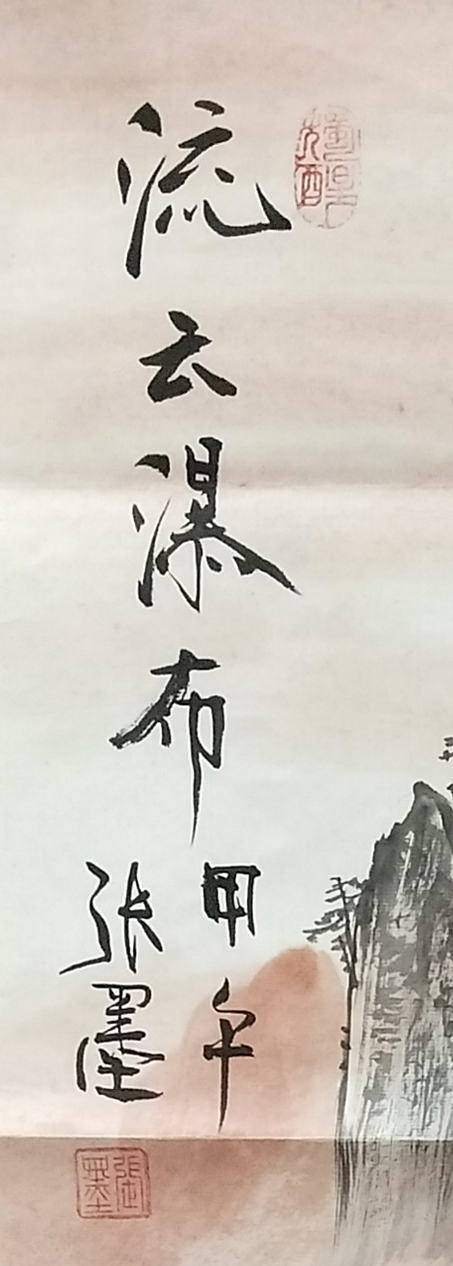 流云瀑布
甲午
张墨
張墨